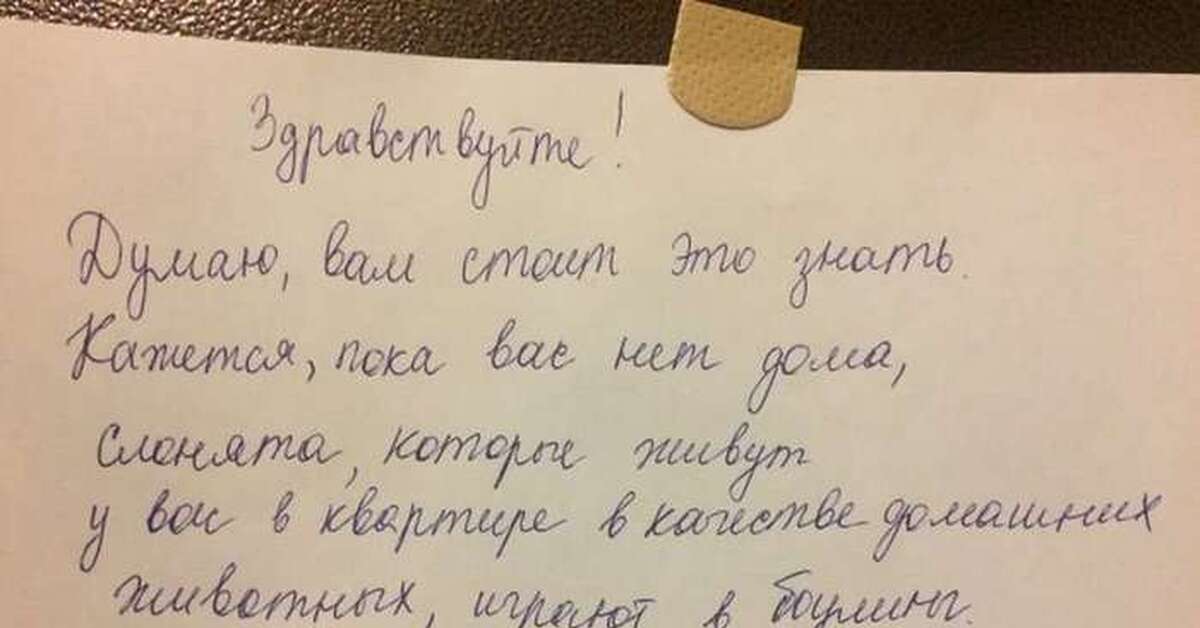 Здравствуйте!
Думаю, вам стоит это знать.
Кажется, пока вас нет дома,
слонята, которые живут
у вас в квартире в качестве домашних
животных, играют в боулинг.